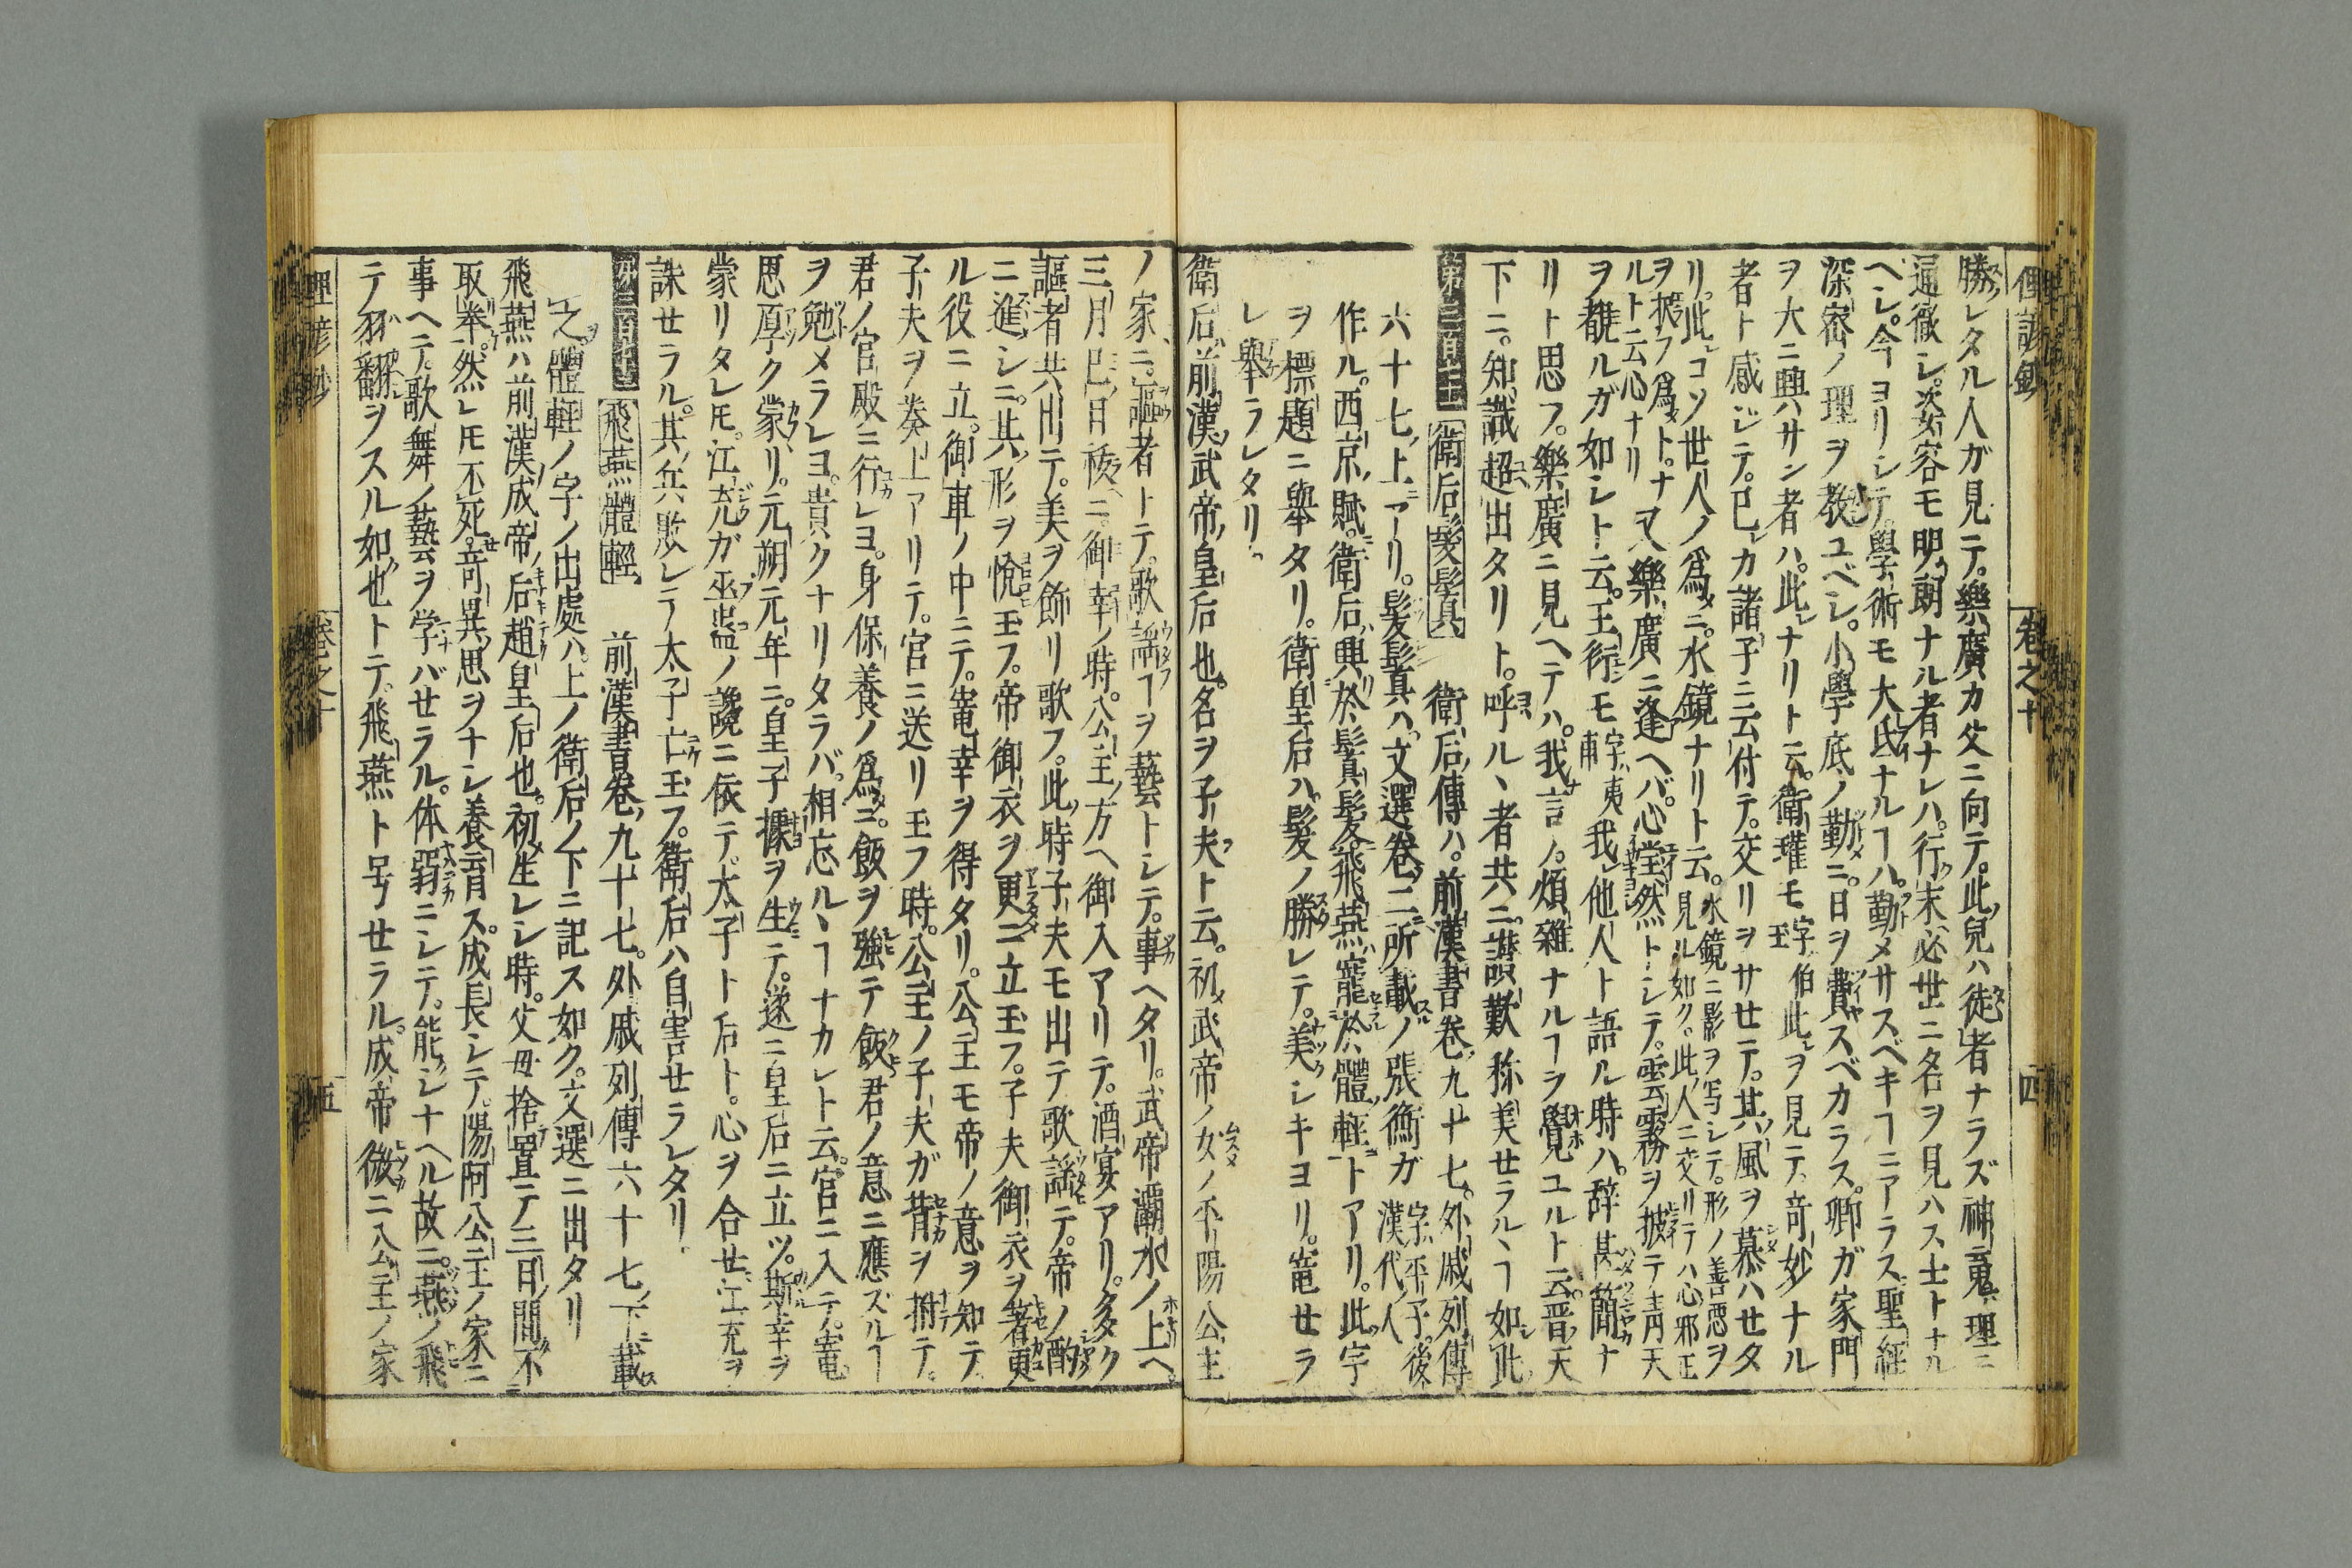 俚諺鈔 卷之十 四
勝レタル人ガ見テ。樂廣カ父ニ向テ。此兒ハ徒者ナラズ神竟理ニ
通徹シ。姿容モ明朗ナル者ナレハ。行末必世ニ名ヲ見ハス士トナル
ヘシ。今ヨリシテ。學術モ大氐ナルヿハ。勤メサスベキヿニアラス聖經
深密ノ理ヲ教ユベシ。小學底ノ勤ニ。日ヲ費スベカラス。卿ガ家門
ヲ大ニ興サン者ハ。此ナリト云。衛瓘モ字伯玉此ヲ見ニテ。奇妙ナル
者ト感ジテ。已カ諸子ニ云付テ。交リヲサせテ。其風ヲ慕ハせタ
リ。此コソ世人ノ爲ニ。水鏡ナリト云。水鏡ニ影ヲ写シテ。形ノ善惡ヲ見ル如ク。此人ニ交リテハ心邪正
ヲ據フ爲トナルト云心ナリ又樂廣ニ逢ヘバ。心堂然トシテ。雲霧ヲ披テ青天
ヲ覩ルガ如シト云。王衍モ字ハ夷甫我他人ト語ル時ハ。辞甚簡ナ
リト思フ。樂廣ニ見ヘテハ。我言ノ煩雜ナルヿヲ覺ユルト云。晋天
下ニ。知識超出タリト。呼ル丶者共ニ。讃歎称美せラル丶ヿ如此
第三百二十一 衛后髮鬒 衛后傳ハ。前漢書卷九十七。外戚列傳
六十七上ニアリ。髮鬒ハ。文選卷二所載ノ張衡ガ字ハ平子。後漢代人
作ル。西京賦。衛后興於鬒髮飛燕寵於體輕トアリ。此字
ヲ標題ニ舉タリ。衛皇后ハ。髮ノ勝レテ。美シキヨリ。寵せラ
レ舉ラレタリ。
衛后前漢武帝皇后也。名ヲ子夫ト云。初メ武帝ノ女ノ平陽公主
ノ家ニ。謳者トテ。歌謡ヿヲ藝トシテ。事ヘタリ。武帝灞水ノ上ヘ。
三月巳日祓ニ。御幸ノ時。公主ノ方ヘ御入アリテ。酒宴アリ。多ク
謳者共出テ。美ヲ飾リ歌フ。此時子夫モ出テ歌謡テ。帝ノ酌
ニ進シニ。其形ヲ悅玉フ。帝御衣ヲ更ニ立玉フ。子夫御衣ヲ著更
ル役ニ立。御車ノ中ニテ。寵幸ヲ得タリ。公主モ帝ノ意ヲ知テ。
子夫ヲ奏上アリテ。官ニ送リ玉フ時。公主ノ子夫ガ背ヲ拊テ。
君ノ官殿ニ行レヨ。身保養ノ爲ニ。飯ヲ強テ飯君ノ意ニ應ズルヿ
ヲ勉メラレヨ。貴クナリタラバ。相忘ル丶ヿナカレト云。官ニ入テ。寵
恩厚ク蒙リ。元朔元年ニ。皇子據ヲ生テ。遂ニ皇后ニ立ツ。斯幸ヲ
蒙リタレ𪜈。江充ガ巫蠱ノ讒ニ依テ。太子ト后ト。心ヲ合せ江充ヲ
誅せラル。其兵敗レテ太子亡玉フ。衛后ハ自害せラレタリ。
飛燕體輕 前漢書卷九十七。外戚列傳六十七下ニ載ス
之體輕ノ字ノ出處ハ。上ノ衛后ノ下ニ記ス如ク。文選ニ出タリ
飛燕ハ前漢成帝ノ后趙皇后也。初生レシ時。父母捨置テ三日ノ間不
取舉。然レ𪜈不死。奇異ノ思ヲナシ養育ス。成長シテ。陽阿公主ノ家ニ
事ヘテ。歌舞ノ藝ヲ学バせラル。体弱ニシテ。能シナヘル故ニ。燕ノ飛
テ羽翻ヲスル如也トテ。飛燕ト号せラル。成帝微ニ入公主ノ家
俚諺鈔 卷之十 五